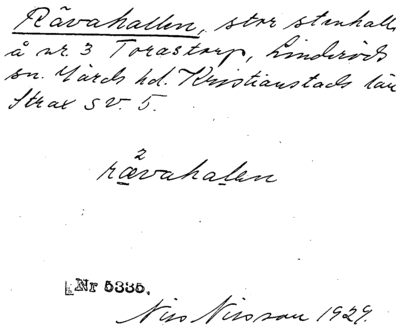 Rävahallen, stor stenhall
å nr. 3 Torastorp, Linderöds
sn. Gärds hd. Kristianstads län
Strax sv. 5.
2
rävahalen
Nr 5335.
Nils Nilsson 1929.